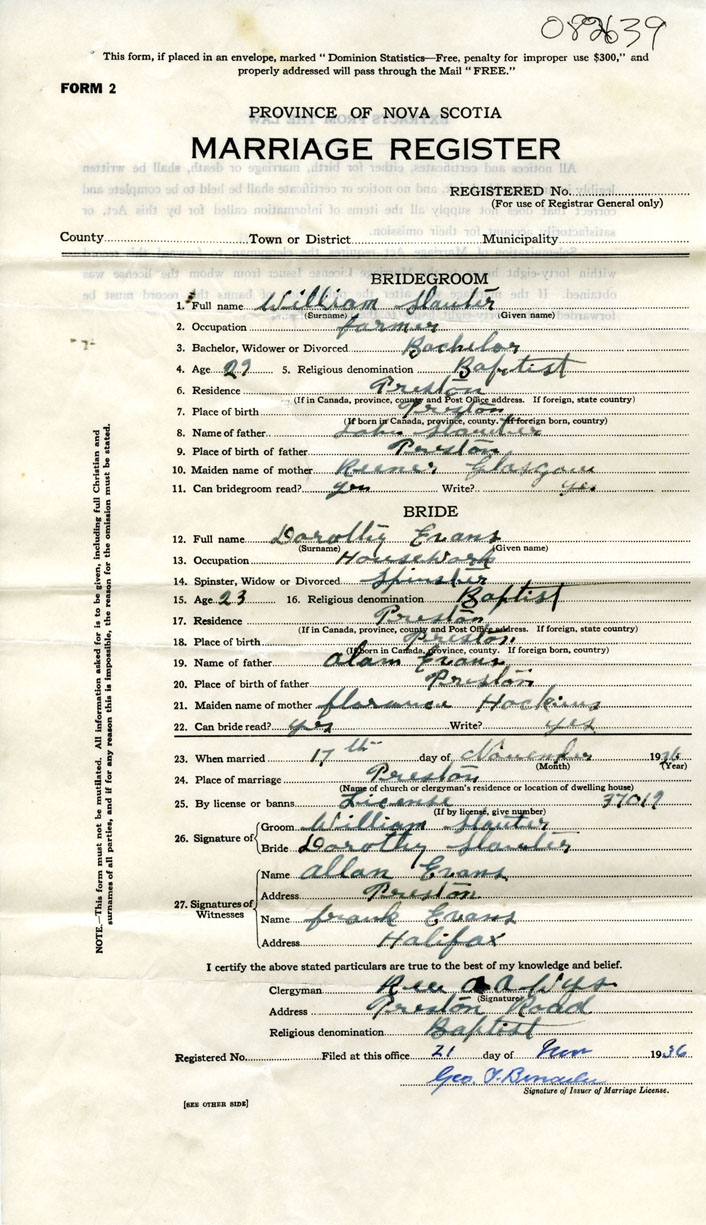 082639
This form, if placed in an envelope, marked "Dominion Statistics—Free, penalty for improper use $300," and
properly addressed will pass through the Mail "FREE."
FORM 2
PROVINCE OF NOVA SCOTIA
MARRIAGE REGISTER
REGISTERED No.
(For use of Registrar General only)
County Town or District Municipality
BRIDEGROOM
1. Full name William Slauter
(Surname) (Given name)
2. Occupation farmer
3. Bachelor, Widower or Divorced Bachelor
4. Age 29 5. Religious denomination Baptist
6. Residence Preston
(If in Canada, province, county and Post Office address. If foreign, state country)
7. Place of birth Preston
(If born in Canada, province, county. If foreign born, country)
8. Name of father John Slauter
9. Place of birth of father Preston
10. Maiden name of mother Reener Glasgow
11. Can bridegroom read? yes Write? yes
BRIDE
12. Full name Dorothy Evans
(Surname) (Given name)
13. Occupation Housework
14. Spinster, Widow or Divorced Spinster
15. Age 23 16. Religious denomination Baptist
17. Residence Preston
(If in Canada, province, county and Post Office address. If foreign, state country)
18. Place of birth Preston
(If born in Canada, province, county. If foreign born, country)
19. Name of father Alam Evans
20. Place of birth of father Preston
21. Maiden name of mother florance Hockins
22. Can bride read? yes Write? yes
23. When married 17th day of November 1936
(Month) (Year)
24. Place of marriage Preston
(Name of church or clergyman's residence or location of dwelling house)
25. By license or banns License 37019
(If by license, give number)
26. Signature of Groom William Slauter
Bride Dorothy Slauter
27. Signatures of Witnesses Name Allan Evans
Address Preston
Name frank Evans
Address Halifax
I certify the above stated particulars are true to the best of my knowledge and belief.
Clergyman Rev
(Signature)
Address Preston Road
Religious denomination Baptist
Registered No. Filed at this office 21 day of Nov 1936
Geo.
Signature of Issuer of Marriage License.
[SEE OTHER SIDE]
NOTE.—This form must not be mutilated. All information asked for is to be given, including full Christian and
surnames of all parties, and if for any reason this is impossible, the reason for the omission must be stated.